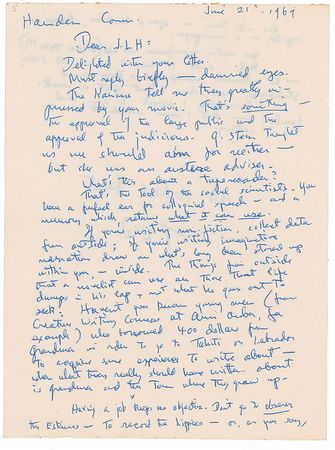 5
June 21, 1969
Hamden Conn.
Dear J.L.H:
Delighted with your letter.
Must reply briefly — damned eyes.
The Marines tell me they greatly im-
pressed by your movie. That's something —
the approval of the large public and the
approval of the judicious. G. Stein thought
us we should aim for neither —
but she was an austere adviser.
What's this about a taperecorder?
That's the tool of the social scientists. You
have a perfect ear for colloquial speech — and a
memory which retains what it can use.
If you're writing non-fiction, collect data
from outside; if you're writing imaginative
narration draw on what's long been stored up
within you, — inside. The things from outside
that a novelist can use are those that life
dumps in his lap, not what he goes out to
seek. Haven't you known young men (from
Creative Writing Courses at Ann Arbor, for
example) who borrowed 400 dollars from
Grandma in order to go to Tahiti or Labrador
to acquire some experience to write about —
when what they really should have written about
is grandma and the town where they grew up.
Having a job keeps no objection. Don't go to observe
the Eskimos — to record the hippies — or, as you say,